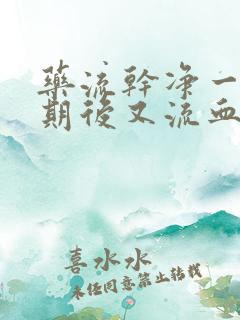 藥流幹凈一
期後又流血
喜水水
未經同意禁止轉載